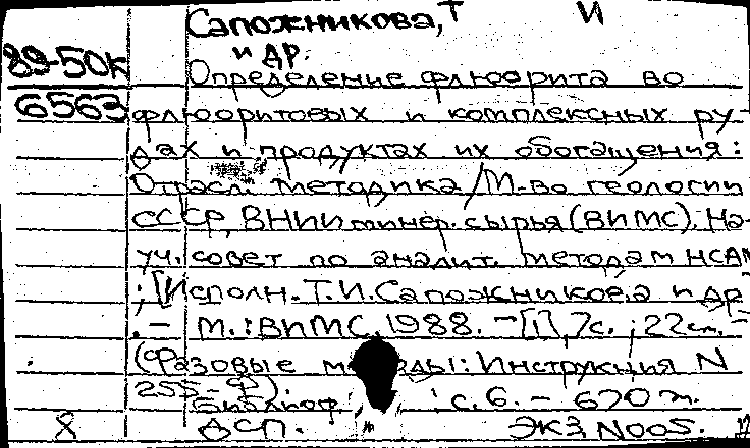 Сапожникова, Т И
и др.
89-50к
6563
Определение флюорита во
флюоритовых и комплексных ру-
дах и продуктах их обогащения:
Отрасл. методика /М-во геологии
СССР, ВНИИ минер. сырья (ВИМС). На-
уч. совет по аналит. методам НСАМ
; [Исполн. Т.И. Сапожникова и др
. - М.: ВИМС, 1988. - [1], 7с. ; 22см. -
(Фазовые методы: Инструкция N
255-Ф)
Библиогр. с. 6. - 670 т.
8 ДСП. ЭКЗ. N005.